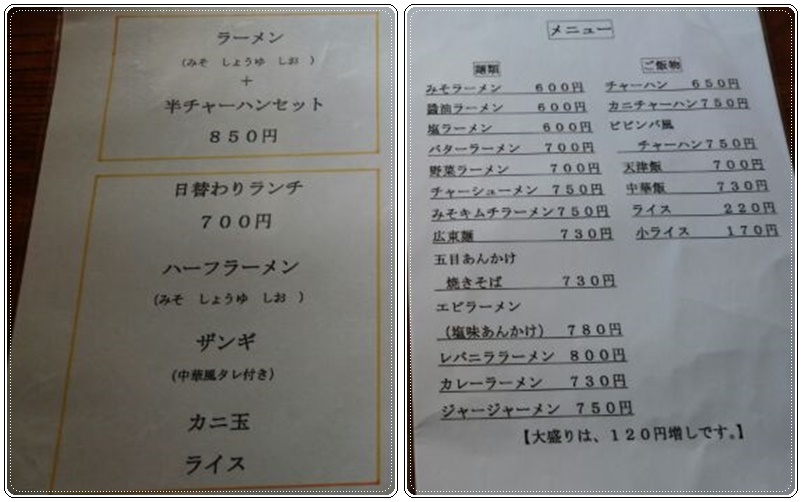 ラーメン
(みそ しょうゆ しお )
+
半チャーハンセット
850円
日替わりランチ
700円
ハーフラーメン
(みそ しょうゆ しお )
ザンギ
(中華風タレ付き)
カニ玉
ライス
メニュー
麺類
みそラーメン 600円
醤油ラーメン 600円
塩ラーメン 600円
バターラーメン 700円
野菜ラーメン 700円
チャーシューメン 750円
みそキムチラーメン750円
広東麺 730円
五目あんかけ
焼きそば 730円
エビラーメン
(塩味あんかけ) 780円
レバニララーメン 800円
カレーラーメン 730円
ジャージャーメン 750円
ご飯物
チャーハン 650円
カニチャーハン750円
ビビンバ風
チャーハン750円
天津飯 700円
中華飯 730円
ライス 220円
小ライス 170円
【大盛りは、120円増しです。】